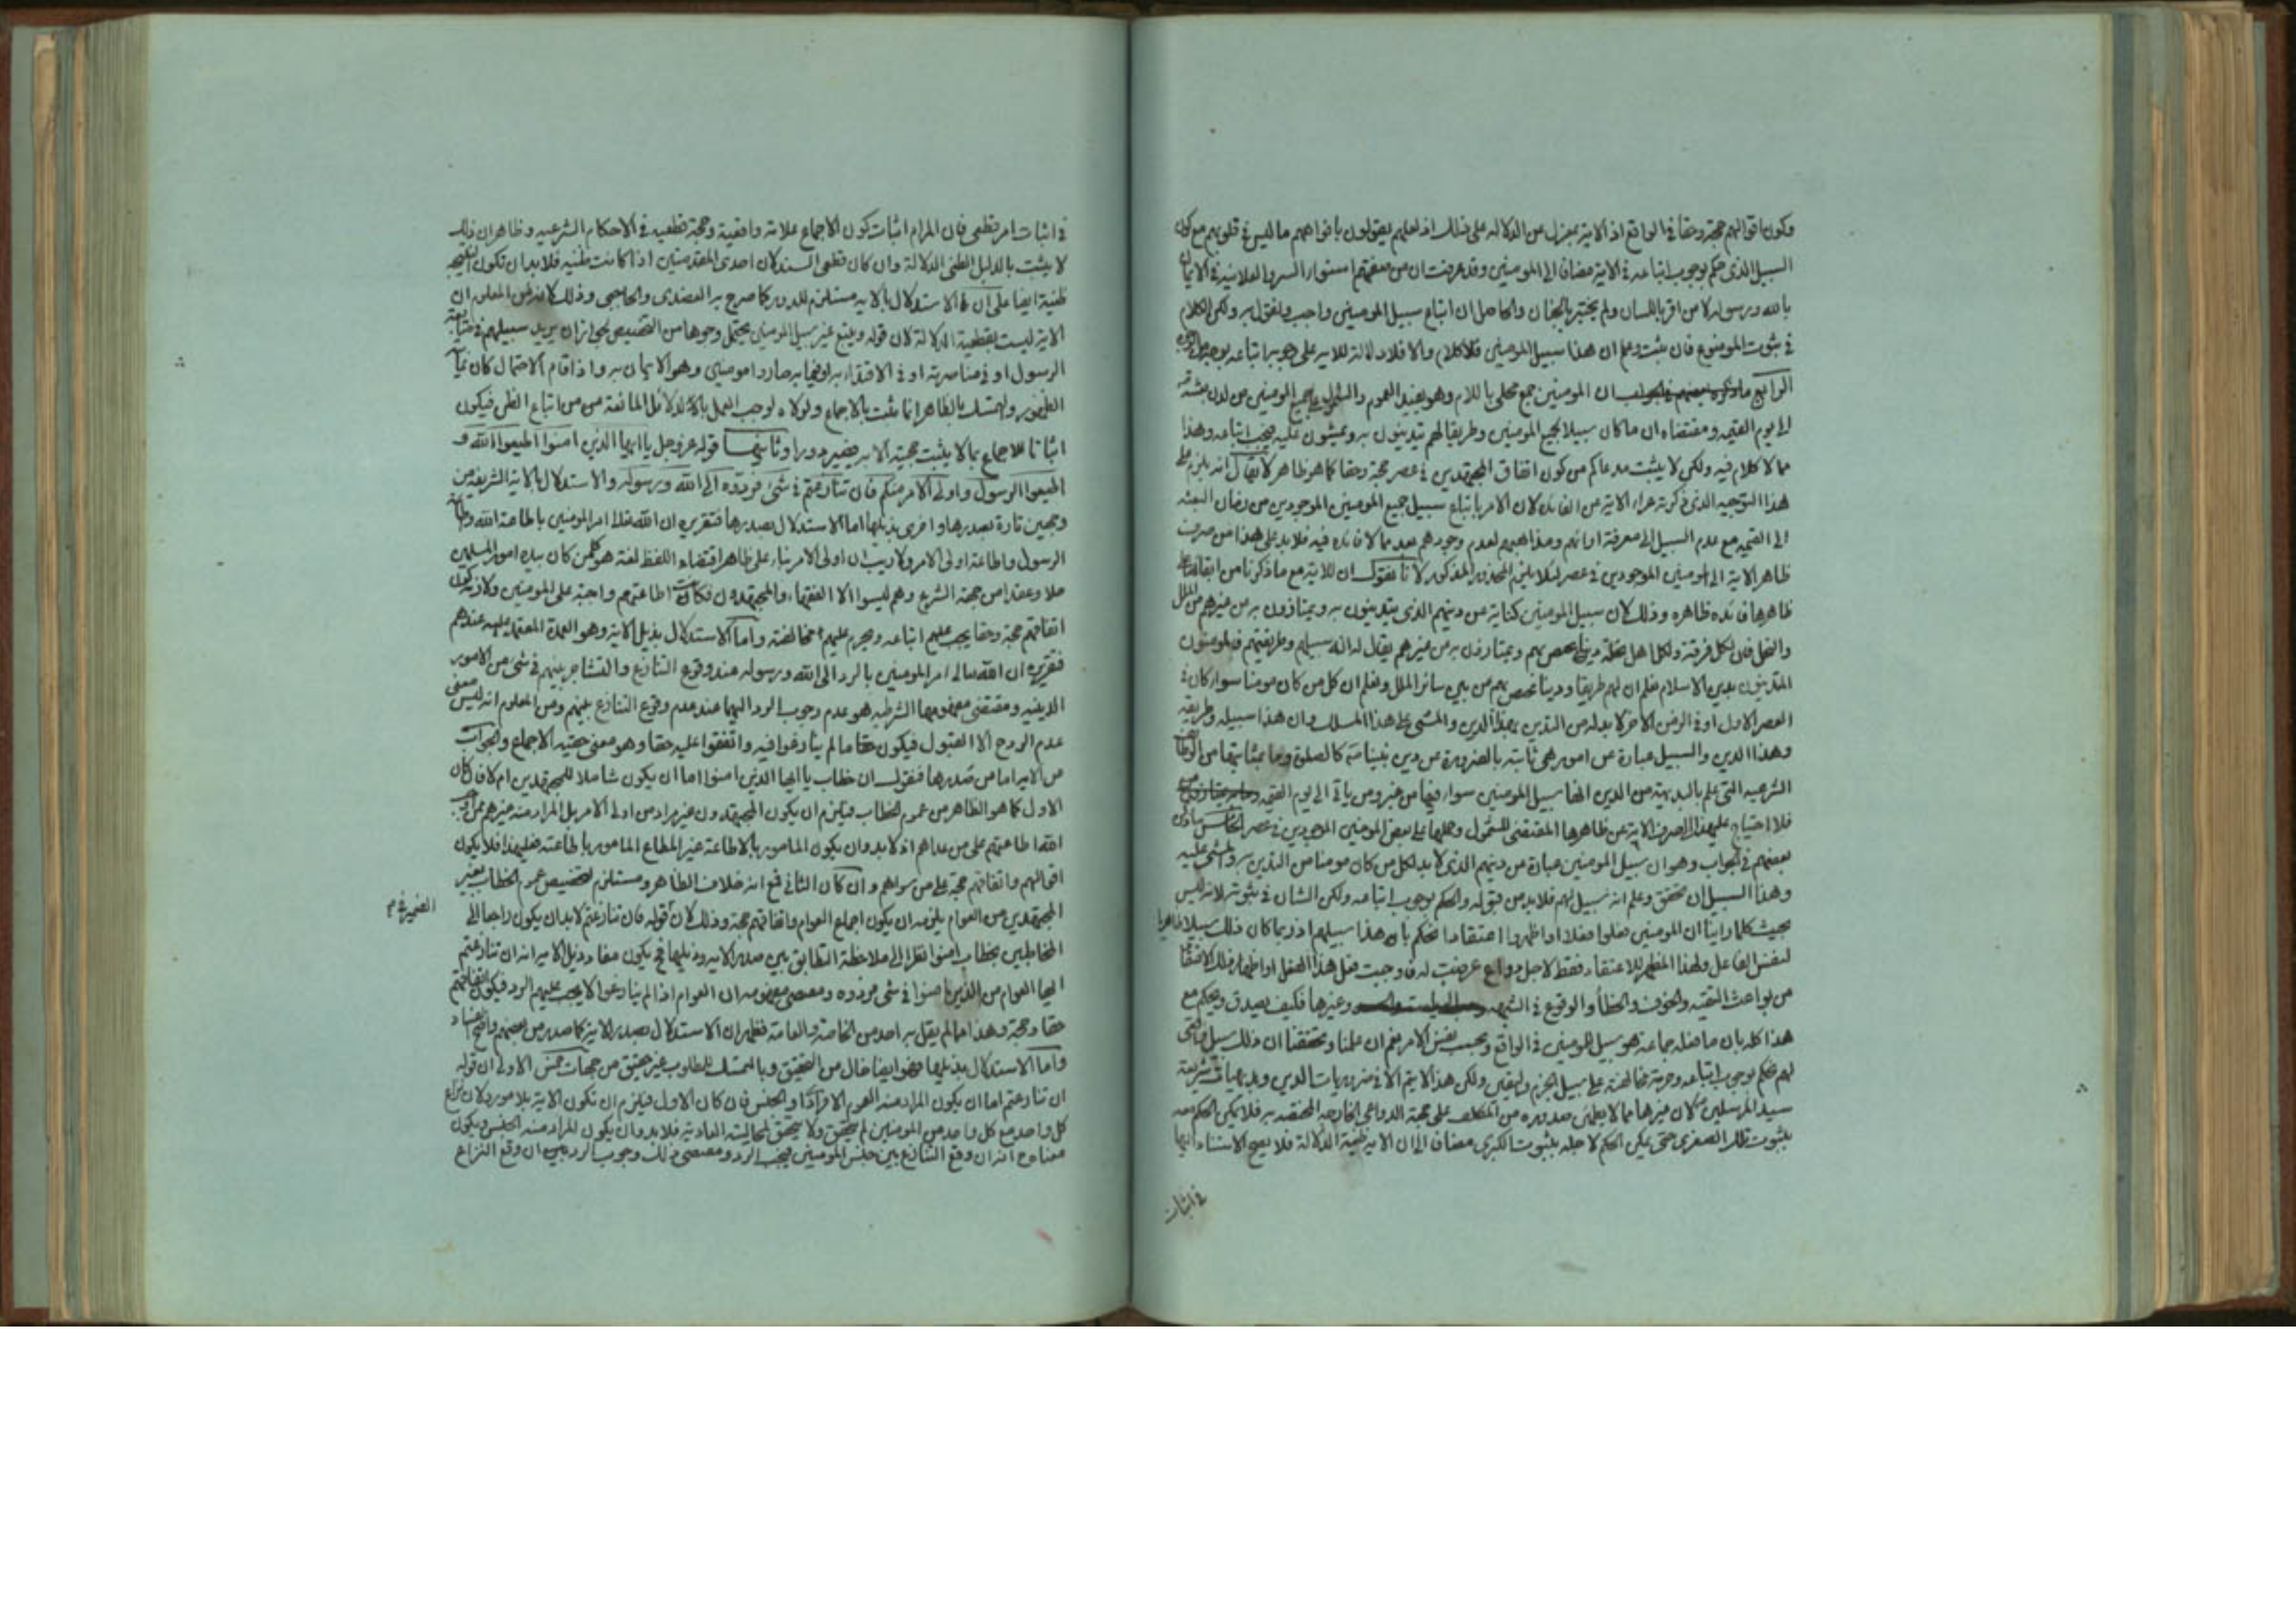 وكون اقوالهم حجة وحقا في الواقع اذ الاية بمعزل عن الدلالة على ذلك اذ لعلهم يقولون بافواههم ما ليس في قلوبهم مع كون
السبيل الذي حكم بوجوب اتباعه في الاية مضاف الى المومنين وقد عرفت ان من صفتهم استواء السر والعلانية في الايمان
بالله ورسوله لا من اقر باللسان ولم يختبر بالجنان والحاصل ان اتباع سبيل المومنين واجب ونقول به ولكن الكلام
في ثبوت الموضوع فان ثبت وعلم ان هذا سبيل المومنين فلا كلام والا فلا دلالة للاية على وجوب اتباعه بوجه من الوجوه
الرابع ان المومنين جمع محلى باللام وهو يفيد العموم والشمول لجميع المومنين من لدن
الى يوم القيمة ومقتضاه ان ما كان سبيلا لجميع المومنين وطريقا لهم يتدينون به ويمشون عليه يجب اتباعه وهذا
مما لا كلام فيه ولكن لا يثبت مدعاكم من كون اتفاق المجتهدين في عصر حجة وحقا كما هو ظاهر لا يقال انه يلزم على
هذا التوجيه الذي ذكرته عراء الاية من الفائدة لان الامر باتباع سبيل جميع المومنين الموجودين من زمان البعثة
الى القيمة مع عدم السبيل الى معرفة ارائهم ومذاهبهم لعدم وجودهم بعد مما لا فائدة فيه فلا بد على هذا من صرف
ظاهر الاية الى المومنين الموجودين في عصر لئلا يلزم المحذور المذكور لانا نقول ان للاية مع ما ذكرنا من ابقائها على
ظاهرها فائدة ظاهرة وذلك لان سبيل المومنين كناية عن دينهم الذي يتدينون به ويمتازون به من غيرهم من الملل
والنحل فان لكل فرقة ولكل اهل نحلة دينا يختص بهم ويمتازون به من غيرهم يقال له انه سبيلهم وطريقتهم فالمومنون
المتدينون بدين الاسلام نعلم ان لهم طريقا ودينا يختص بهم من بين سائر الملل ونعلم ان كل من كان مومنا سواء كان في
العصر الاول او في الزمن الاخر لا بد له من التدين بهذا الدين والمشي على هذا المسلك وان هذا سبيله وطريقته
وهذا الدين والسبيل عبارة عن امور هي ثابتة بالضرورة من دين نبينا ص كالصلوة وما بمثابتها من الوظائف
الشرعية التي علم بالبديهة من الدين انها سبيل المومنين سواء فيها من غبر ومن ياتي الى يوم القيمة
فلا احتياج على هذا الى صرف الاية عن ظاهرها المقتضي للشمول وحملها على بعض المومنين الموجودين في عصر الخامس ما ذكره
بعضهم في الجواب وهو ان سبيل المومنين عبارة من دينهم الذي لا بد لكل من كان مومنا من التدين به والمشي عليه
وهذا السبيل ان تحقق وعلم انه سبيل لهم فلا بد من قبوله والحكم بوجوب اتباعه ولكن الشان في ثبوته لانه ليس
بحيث كلما راينا ان المومنين فعلوا فعلا او اظهروا اعتقادا نحكم بانه هذا سبيلهم اذ ربما كان ذلك سبيلا ظاهريا
لنفس الفاعل ولهذا المظهر للاعتقاد فقط لاجل دواع عرضت له فاوجبت فعل هذا الفعل او اظهار ذلك الاعتقاد
من بواعث التقية والخوف والخطأ والوقوع في الشبهة وغيرها فكيف يصدق ويحكم مع
هذا كله بان ما فعله جماعة هو سبيل المومنين في الواقع وبحسب نفس الامر نعم ان علمنا وتحققنا ان ذلك سبيل واقعي
لهم نحكم بوجوب اتباعه وحرمة مخالفته على سبيل الجزم واليقين ولكن هذا لا يتم الا في ضروريات الدين وبديهيات شريعة
سيد المرسلين لان غيرها مما لا يعلم صدوره من المكلف على جهة الدواعي الخارجة المحتفة به فلا يمكن الحكم معه
بثبوت تلك الصغرى حتى يمكن الحكم لاجله بثبوت الكبرى مضاف الى ان الاية ظنية الدلالة فلا يصح الاستناد اليها
في اثبات
في اثبات امر قطعي فان المرام اثبات كون الاجماع علامة واقعية وحجة قطعية في الاحكام الشرعية وظاهر ان ذلك
لا يثبت بالدليل الظني الدلالة وان كان قطعي السند لان احدى المقدمتين اذا كانت ظنية فلا بد ان تكون النتيجة
ظنية ايضا على ان الاستدلال بالاية مستلزم للدور كما صرح به العضدي والحاجبي وذلك لان من المعلوم ان
الاية ليست بقطعية الدلالة لان قوله ويتبع غير سبيل المومنين يحتمل وجوها من التخصيص لجواز ان يريد سبيلهم في متابعة
الرسول او في مناصرته او في الاقتداء به او فيما به صاروا مومنين وهو الايمان به واذا قام الاحتمال كان غاية
الظهور والتمسك بالظاهر انما يثبت بالاجماع ولولاه لوجب العمل بالدلائل المانعة من اتباع الظن فيكون
اثباتا للاجماع بما لا يثبت حجيته الا به فيصير دورا وثانيها قوله عز وجل يا ايها الذين امنوا اطيعوا الله و
اطيعوا الرسول واولي الامر منكم فان تنازعتم في شئ فردوه الى الله ورسوله والاستدلال بالاية الشريفة من
وجهين تارة بصدرها واخرى بذيلها اما الاستدلال بصدرها فتقريره ان الله تعالى امر المومنين باطاعة الله واطاعة
الرسول واطاعة اولي الامر ولا ريب ان اولي الامر بناء على ظاهر اقتضاء اللفظ لغة هو كل من كان بيده امور المسلمين
حلا وعقدا من جهة الشرع وهم ليسوا الا الفقهاء والمجتهدون فكانت اطاعتهم واجبة على المومنين ولازمه كون
اتفاقهم حجة وحقا يجب عليهم اتباعه ويحرم عليهم مخالفته واما الاستدلال بذيل الاية وهو العمدة المعتمد عليه عندهم
فتقريره ان الله تعالى امر المومنين بالرد الى الله ورسوله عند وقوع التنازع والتشاجر بينهم في شئ من الامور
الدينية ومقتضى مفهومها الشرطية هو عدم وجوب الرد اليهما عند عدم وقوع التنازع بينهم ومن المعلوم انه ليس معنى
عدم الرد ح الا القبول فيكون حقا ما لم يتنازعوا فيه واتفقوا عليه حقا وهو معنى حقية الاجماع والجواب
عن الاية اما من صدرها فنقول ان خطاب يا ايها الذين امنوا اما ان يكون شاملا للمجتهدين ام لا فان كان
الاول كما هو الظاهر من عموم الخطاب فيلزم ان يكون المجتهدون غير مراد من اولي الامر بل المراد منه غيرهم ممن اوجب
الله اطاعتهم على من عداهم اذ لا بد وان يكون المامور بالاطاعة غير المطاع المامور باطاعته فعلى هذا فلا يكون
اقوالهم واتفاقهم حجة على من سواهم وان كان الثاني فمع انه خلاف الظاهر ومستلزم لتخصيص عموم الخطاب بغير
المجتهدين من العوام يلزمه ان يكون اجماع العوام واتفاقهم حجة وذلك لان قوله فان تنازعتم لا بد ان يكون راجعا الى
الضمير في م
المخاطبين بخطاب امنوا نظرا الى ملاحظة التطابق بين صدر الاية وذيلها فح يكون مفاد ذيل الاية انه ان تنازعتم
ايها العوام من الذين امنوا في شئ فردوه ومقتضى مفهومه ان العوام اذا لم يتنازعوا لا يجب عليهم الرد فيكون اتفاقهم
حقا وحجة وهذا مما لم يقل به احد من الخاصة والعامة فظهر ان الاستدلال بصدر الاية كما صدر من بعضهم واضح الفساد
واما الاستدلال بذيلها فهو ايضا خال من التحقيق وبالتمسك للمطلوب غير حقيق من جهات خمس الاولى ان قوله
ان تنازعتم اما ان يكون المراد منه العموم الافرادي او الجنس فان كان الاول فيلزم ان تكون الاية بلا مورد لان نزاع
كل واحد مع كل واحد من المومنين لم يتحقق ولا يتحقق لمحاليته العادية فلا بد وان يكون المراد منه الجنس ويكون
معناه ح انه ان وقع التنازع بين جنس المومنين فيجب الرد ومقتضى ذلك وجوب الرد حين ان وقع النزاع